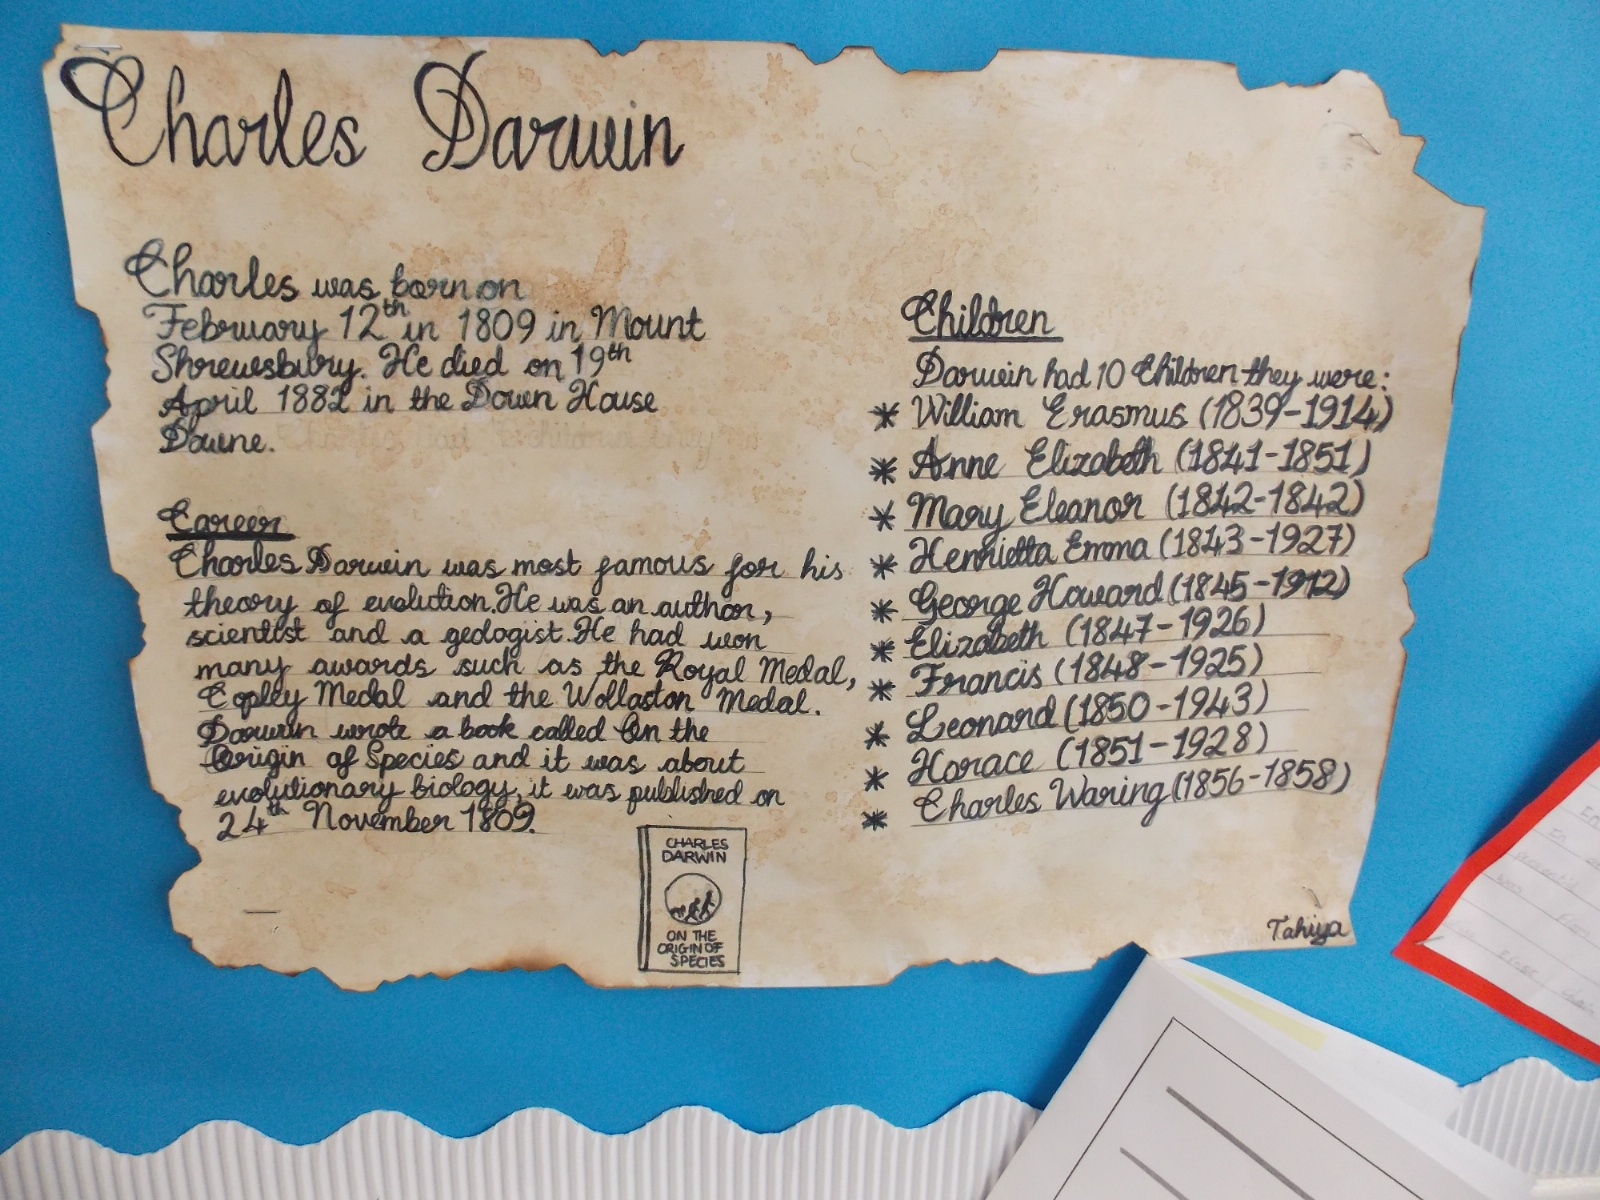 Charles Darwin
Charles was born on
February 12th in 1809 in Mount
Shrewsbury. He died on 19th
April 1882 in the Down House
Downe.
Career
Charles Darwin was most famous for his
theory of evolution. He was an author,
scientist and a geologist. He had won
many awards such as the Royal Medal,
Copley Medal and the Wollaston Medal.
Darwin wrote a book called On the
Origin of Species and it was about
evolutionary biology, it was published on
24th November 1809.
CHARLES
DARWIN
ON THE
ORIGIN OF
SPECIES
Children
Darwin had 10 Children they were:
* William Erasmus (1839-1914)
* Anne Elizabeth (1841-1851)
* Mary Eleanor (1842-1842)
* Henrietta Emma (1843-1927)
* George Howard (1845-1912)
* Elizabeth (1847-1926)
* Francis (1848-1925)
* Leonard (1850-1943)
* Horace (1851-1928)
* Charles Waring (1856-1858)
Tahiya